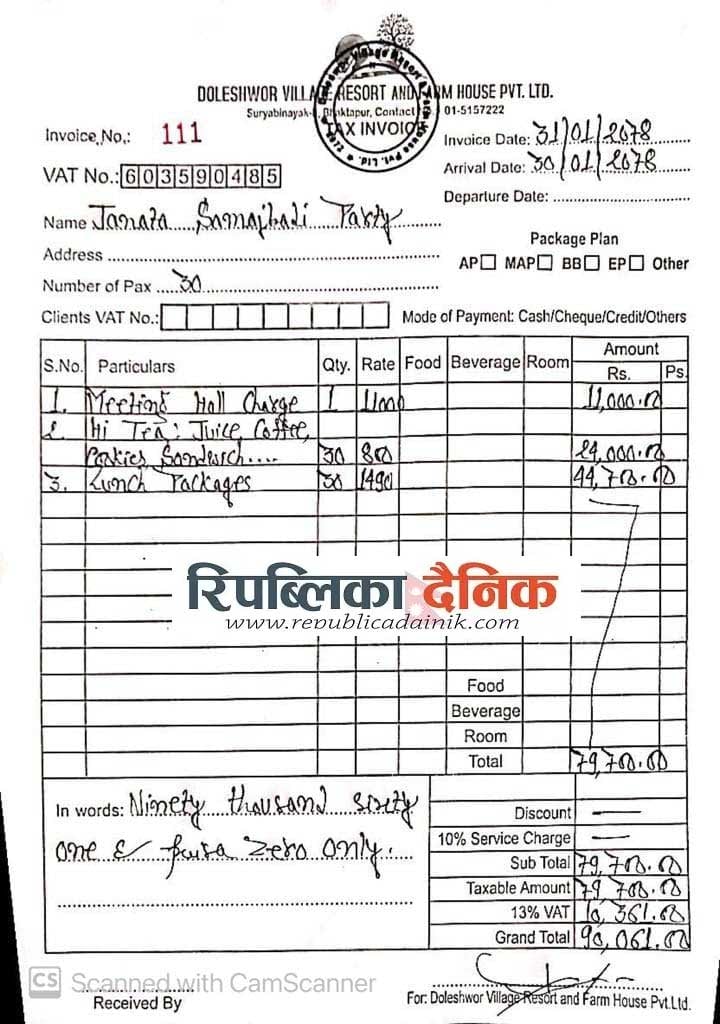 DOLESHWOR VILLAGE RESORT AND FARM HOUSE PVT. LTD.
Suryabinayak-, Bhaktapur, Contact 01-5157222
TAX INVOICE
Invoice No.: 111
Invoice Date: 31/01/2078
VAT No.: 603590485
Arrival Date: 30/01/2078
Departure Date:
Name Janata Samajbadi Party
Address
Package Plan
AP MAP BB EP Other
Number of Pax 30
Clients VAT No.:
Mode of Payment: Cash/Cheque/Credit/Others
S.No. Particulars Qty. Rate Food Beverage Room Amount
Rs. Ps.
1. Meeting Hall Charge 1 11000 11,000.00
2. Hi Tea: Juice, Coffee,
Cookies Sandwich.... 30 800 24,000.00
3. Lunch Packages 30 1490 44,700.00
रिपब्लिका दैनिक
www.republicadainik.com
Food
Beverage
Room
Total 79,700.00
In words: Ninety thousand sixty
one & paisa zero only.
Discount —
10% Service Charge —
Sub Total 79,700.00
Taxable Amount 79,700.00
13% VAT 10,361.00
Grand Total 90,061.00
CS Scanned with CamScanner
Received By
For: Doleshwor Village Resort and Farm House Pvt.Ltd.